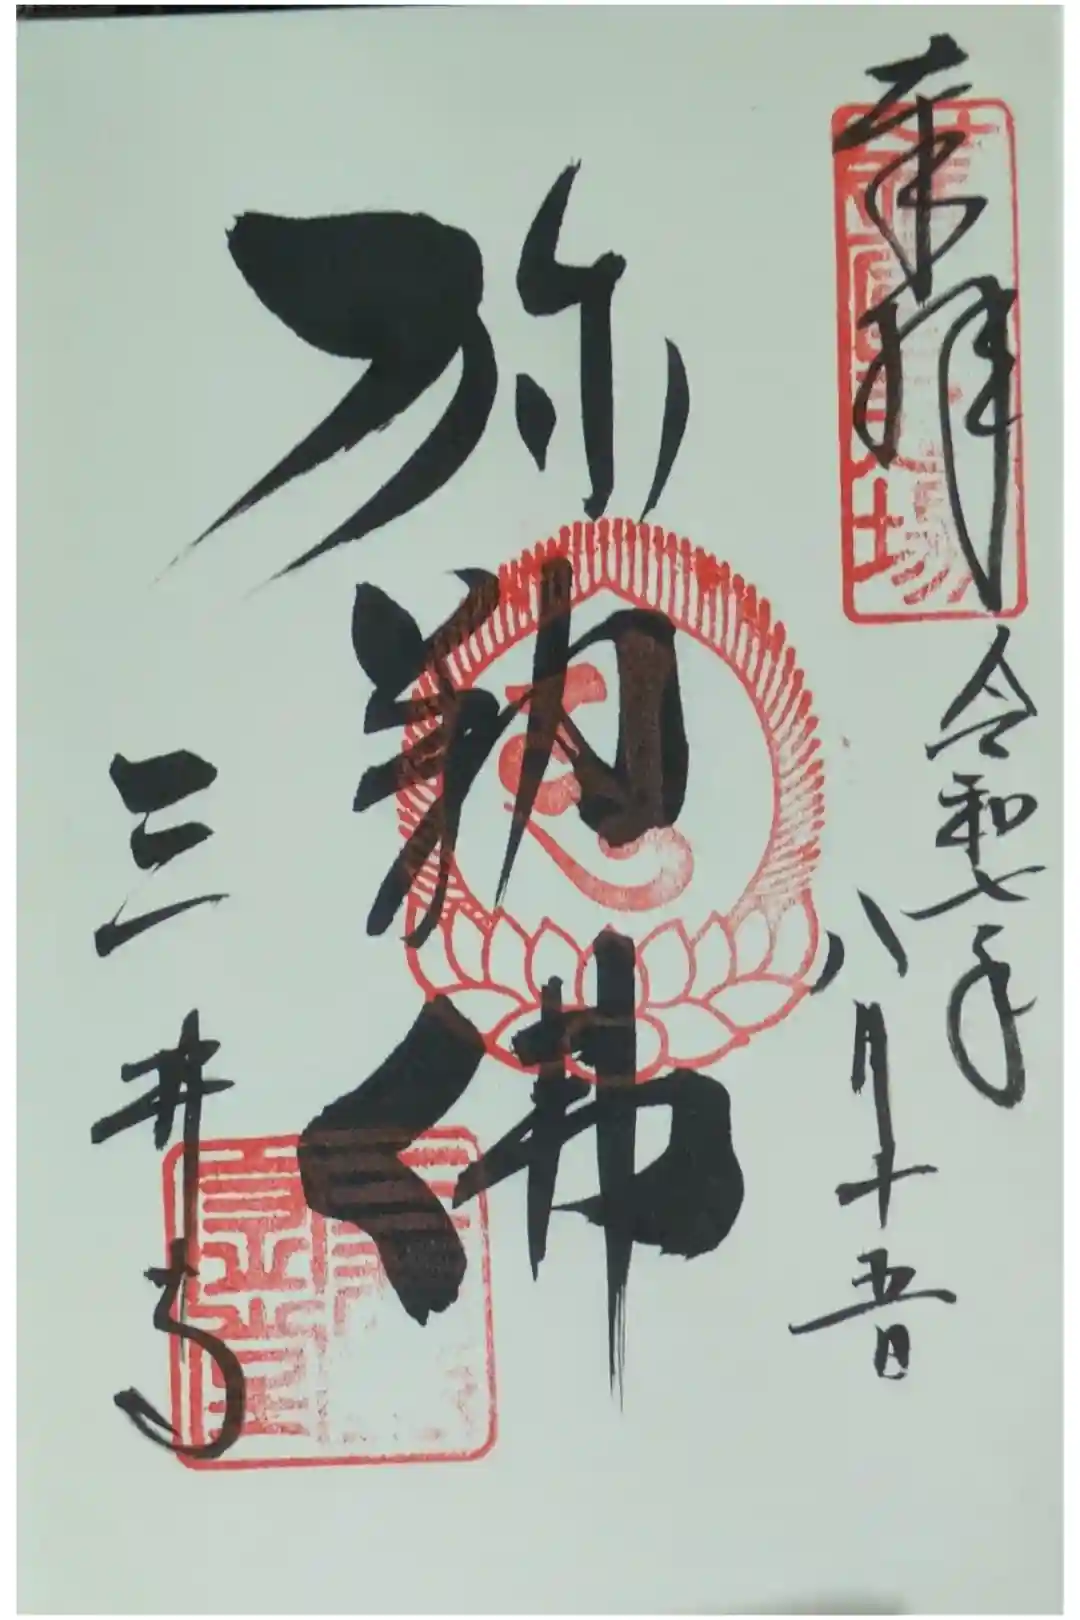 奉拝
令和七年
八月十五日
弥勒佛
三井寺